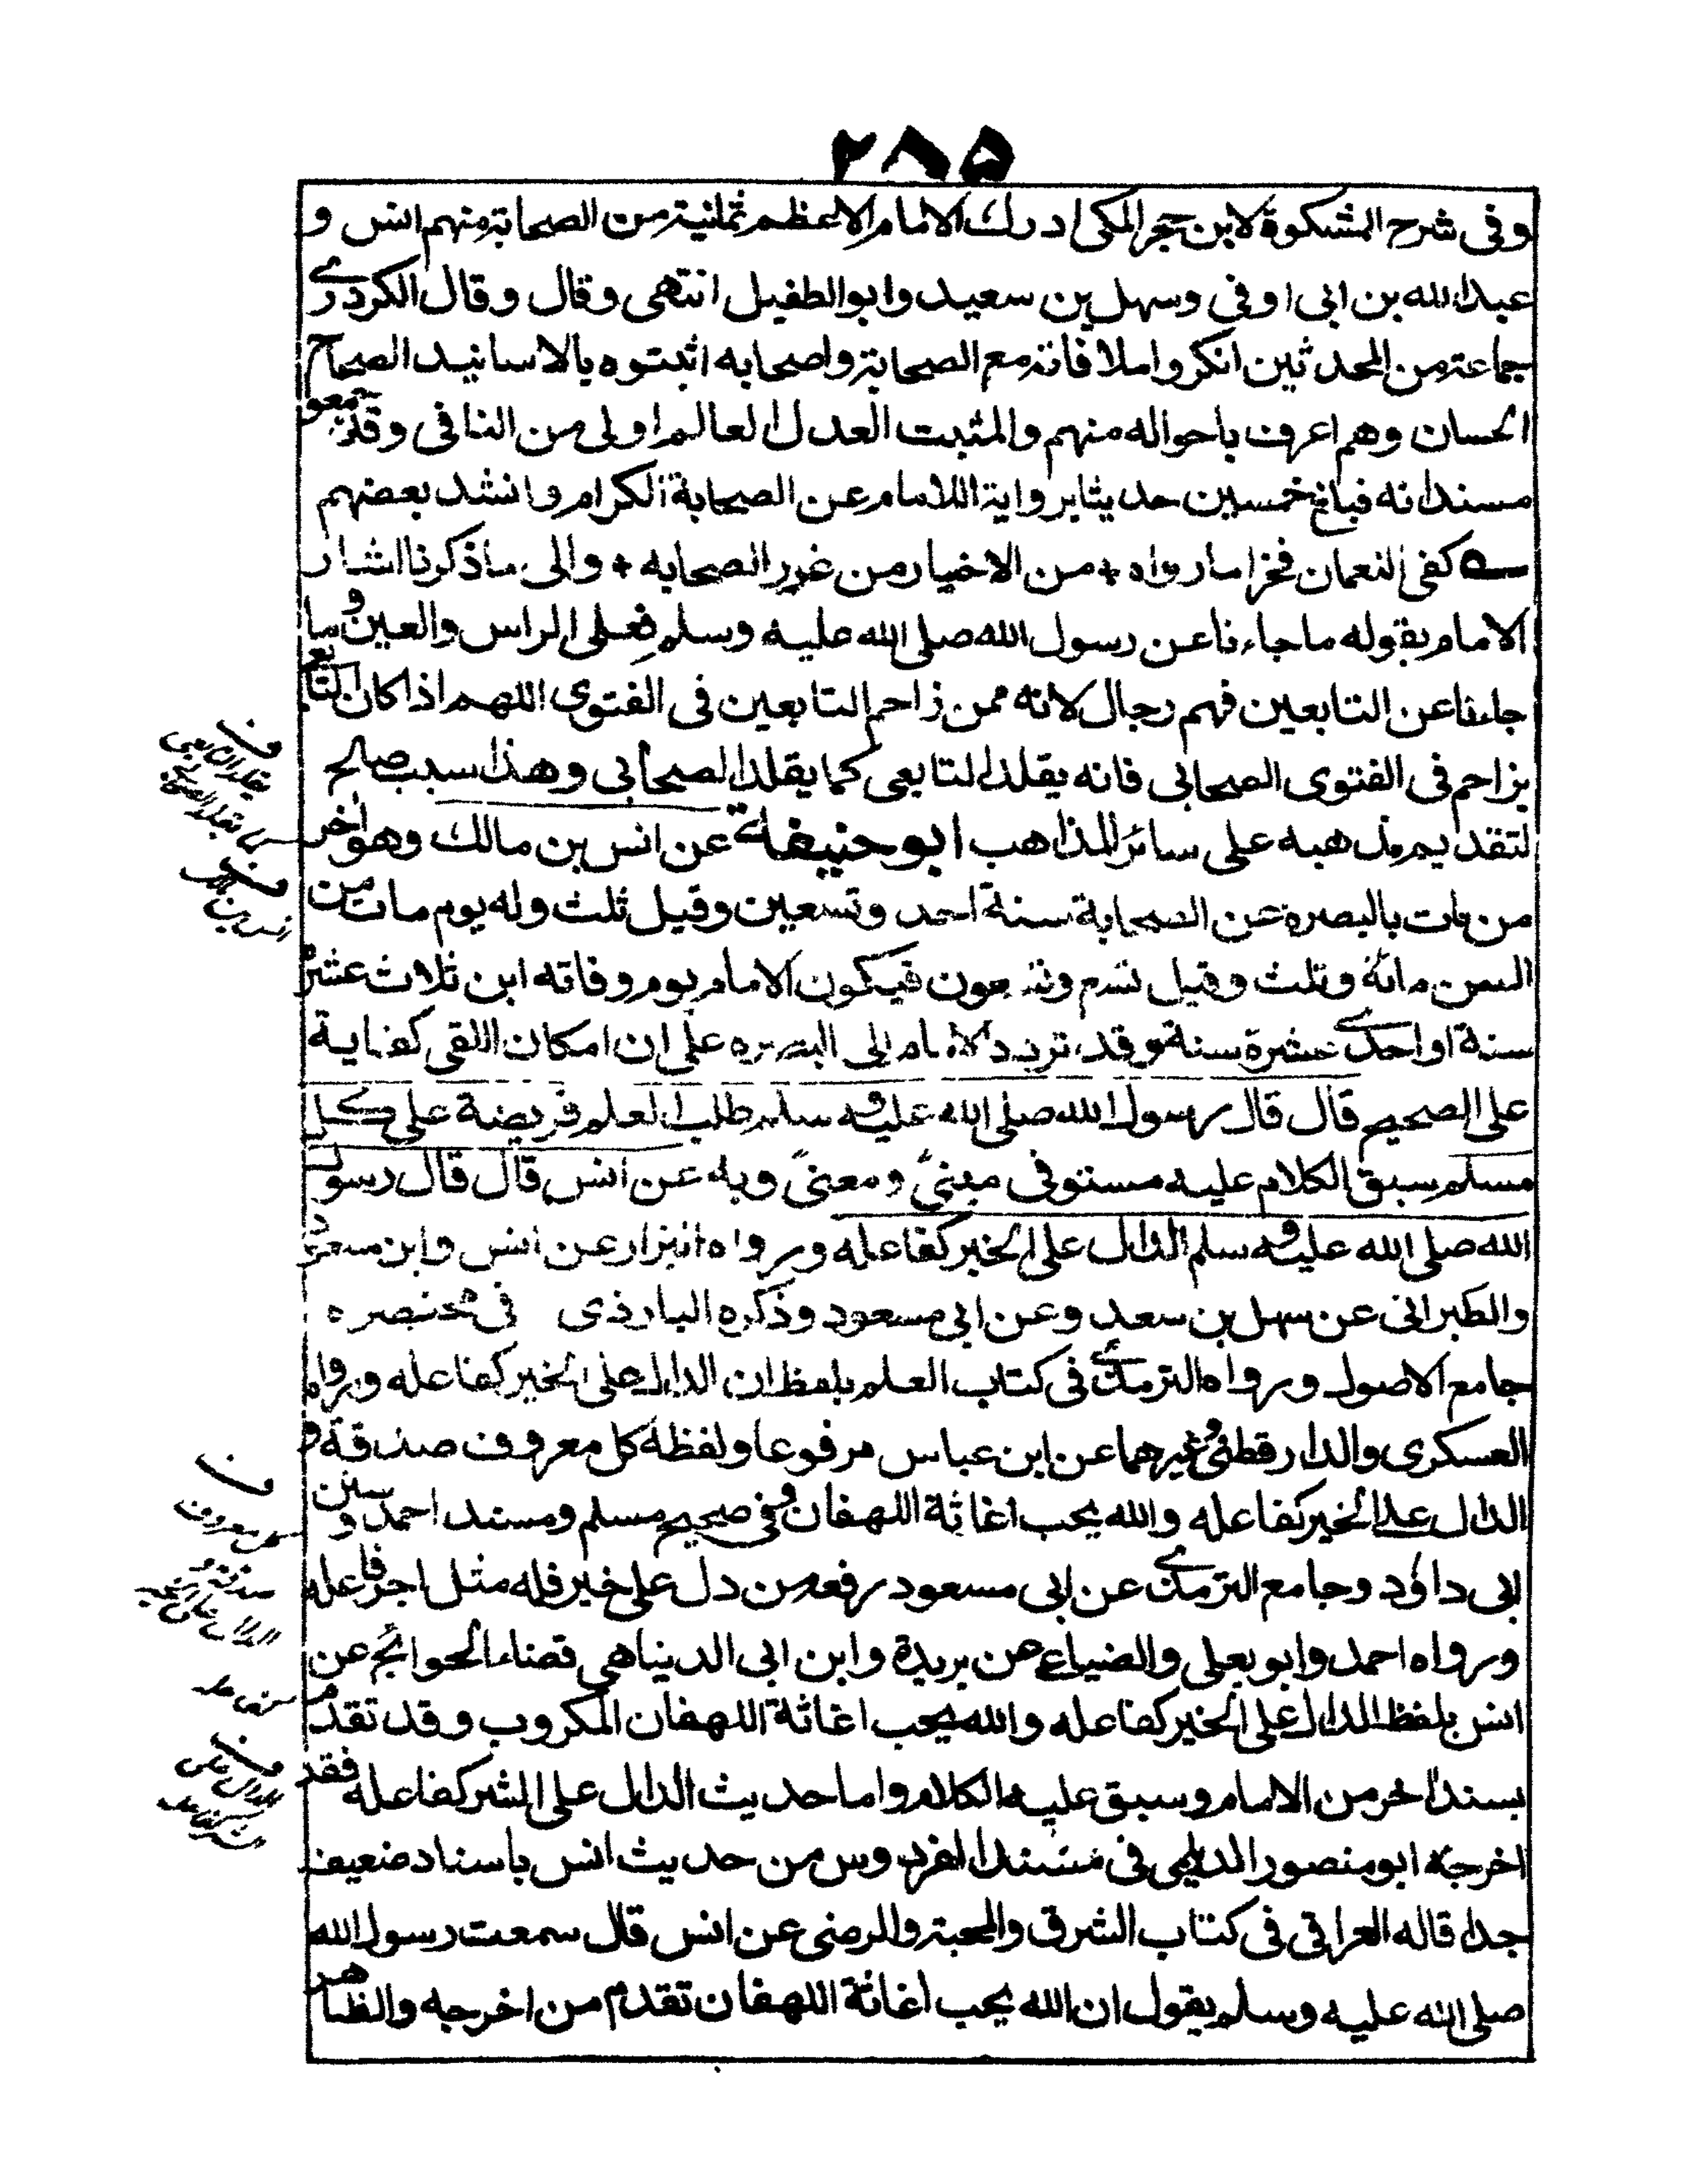 ٢٨٥
وفى شرح المشكوة لابن حجر المكى ادرك الامام الاعظم ثمانية من الصحابة منهم انس و
عبد الله بن ابى اوفى وسهل بن سعيد وابو الطفيل انتهى وقال وقال الكردرى
جماعة من المحدثين انكروا ملاقاته مع الصحابة واصحابه اثبتوه بالاسانيد الصحاح
الحسان وهم اعرف باحواله منهم والمثبت العدل العالم اولى من النافى وقد جمعوا
مسنداته فبلغ خمسين حديثا برواية اللامام عن الصحابة الكرام وانشد بعضهم
كفى النعمان فخرا مارواه + من الاخيار من غرر الصحابه + والى ماذكرنا اشار
الامام بقوله ماجاءنا عن رسول الله صلى الله عليه وسلم فعلى الراس والعين وما
جاءنا عن التابعين فهم رجال لانه ممن زاحم التابعين فى الفتوى اللهم اذا كان التابعى
يزاحم فى الفتوى الصحابى فانه يقلد التابعى كما يقلد الصحابى وهذا سبب صالح
لتقديم مذهبه على سائر المذاهب ابو حنيفة عن انس بن مالك وهو اخر
من مات بالبصرة عن الصحابة سنة احد وتسعين وقيل ثلث وله يوم مات من
السن مائة وثلث وقيل تسع وتسعون فيكون الامام يوم وفاته ابن ثلاث عشر
سنة او احدى عشرة سنة وقد تردد الامام الى البصره على ان امكان اللقى كفاية
على الصحيح قال قال رسول الله صلى الله عليه و سلم طلب العلم فريضة على كل
مسلم سبق الكلام عليه مستوفى مبنىً و معنىً وبه عن انس قال قال رسول
الله صلى الله عليه و سلم الدال على الخير كفاعله ورواه البزار عن انس وابن مسعود
والطبرانى عن سهل بن سعد وعن ابى مسعود وذكره البارذى فى مختصره
جامع الاصول ورواه الترمذى فى كتاب العلم بلفظ ان الدال على الخير كفاعله ورواه
العسكرى والدارقطنى وغيرهما عن ابن عباس مرفوعا ولفظه كل معروف صدقة و
الدال على الخير كفاعله والله يحب اغاثة اللهفان وفى صحيح مسلم ومسند احمد و سنن
ابى داؤد وجامع الترمذى عن ابى مسعود رفعه من دل على خير فله مثل اجر فاعله
ورواه احمد وابو يعلى والضياء عن بريدة وابن ابى الدنيا هى قضاء الحوائج عن
انس بلفظ الدال على الخير كفاعله والله يحب اغاثة اللهفان المكروب وقد تقدم
بسند الحر من الامام وسبق عليه الكلام واما حديث الدال على الشر كفاعله فقد
اخرجه ابو منصور الديلمى فى مسند الفردوس من حديث انس باسناد ضعيف
جدا قاله العراقى فى كتاب الشرق والمحبة والرضى عن انس قال سمعت رسول الله
صلى الله عليه وسلم يقول ان الله يحب اغاثة اللهفان تقدم من اخرجه والظاهر